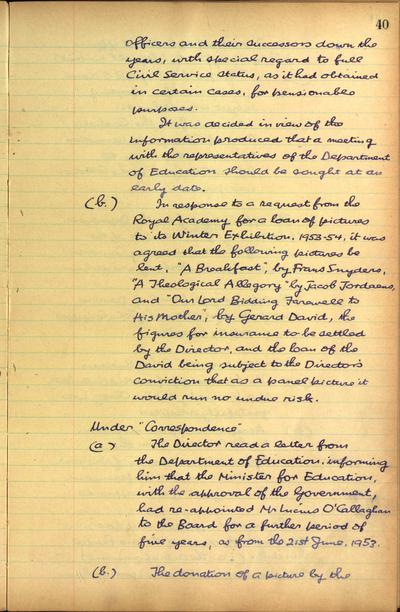 40
officers and their successors down the
years, with special regard to full
Civil Service status, as it had obtained
in certain cases, for pensionable
purposes.
It was decided in view of the
information produced that a meeting
with the representatives of the Department
of Education should be sought at an
early date.
(b.) In response to a request from the
Royal Academy for a loan of pictures
to its Winter Exhibition. 1953-54, it was
agreed that the following pictures be
lent. "A Breakfast", by Frans Snyders,
"A Theological Allegory" by Jacob Jordaens,
and "Our Lord Bidding Farewell to
His Mother", by Gerard David, the
figures for insurance to be settled
by the Director, and the loan of the
David being subject to the Director's
conviction that as a panel picture it
would run no undue risk.
Under "Correspondence"
(a) The Director read a letter from
the Department of Education. informing
him that the Minister for Education,
with the approval of the Government,
had re-appointed Mr Lucius O'Callaghan
to the Board for a further period of
five years, as from the 21st June. 1953.
(b.) The donation of a picture by the